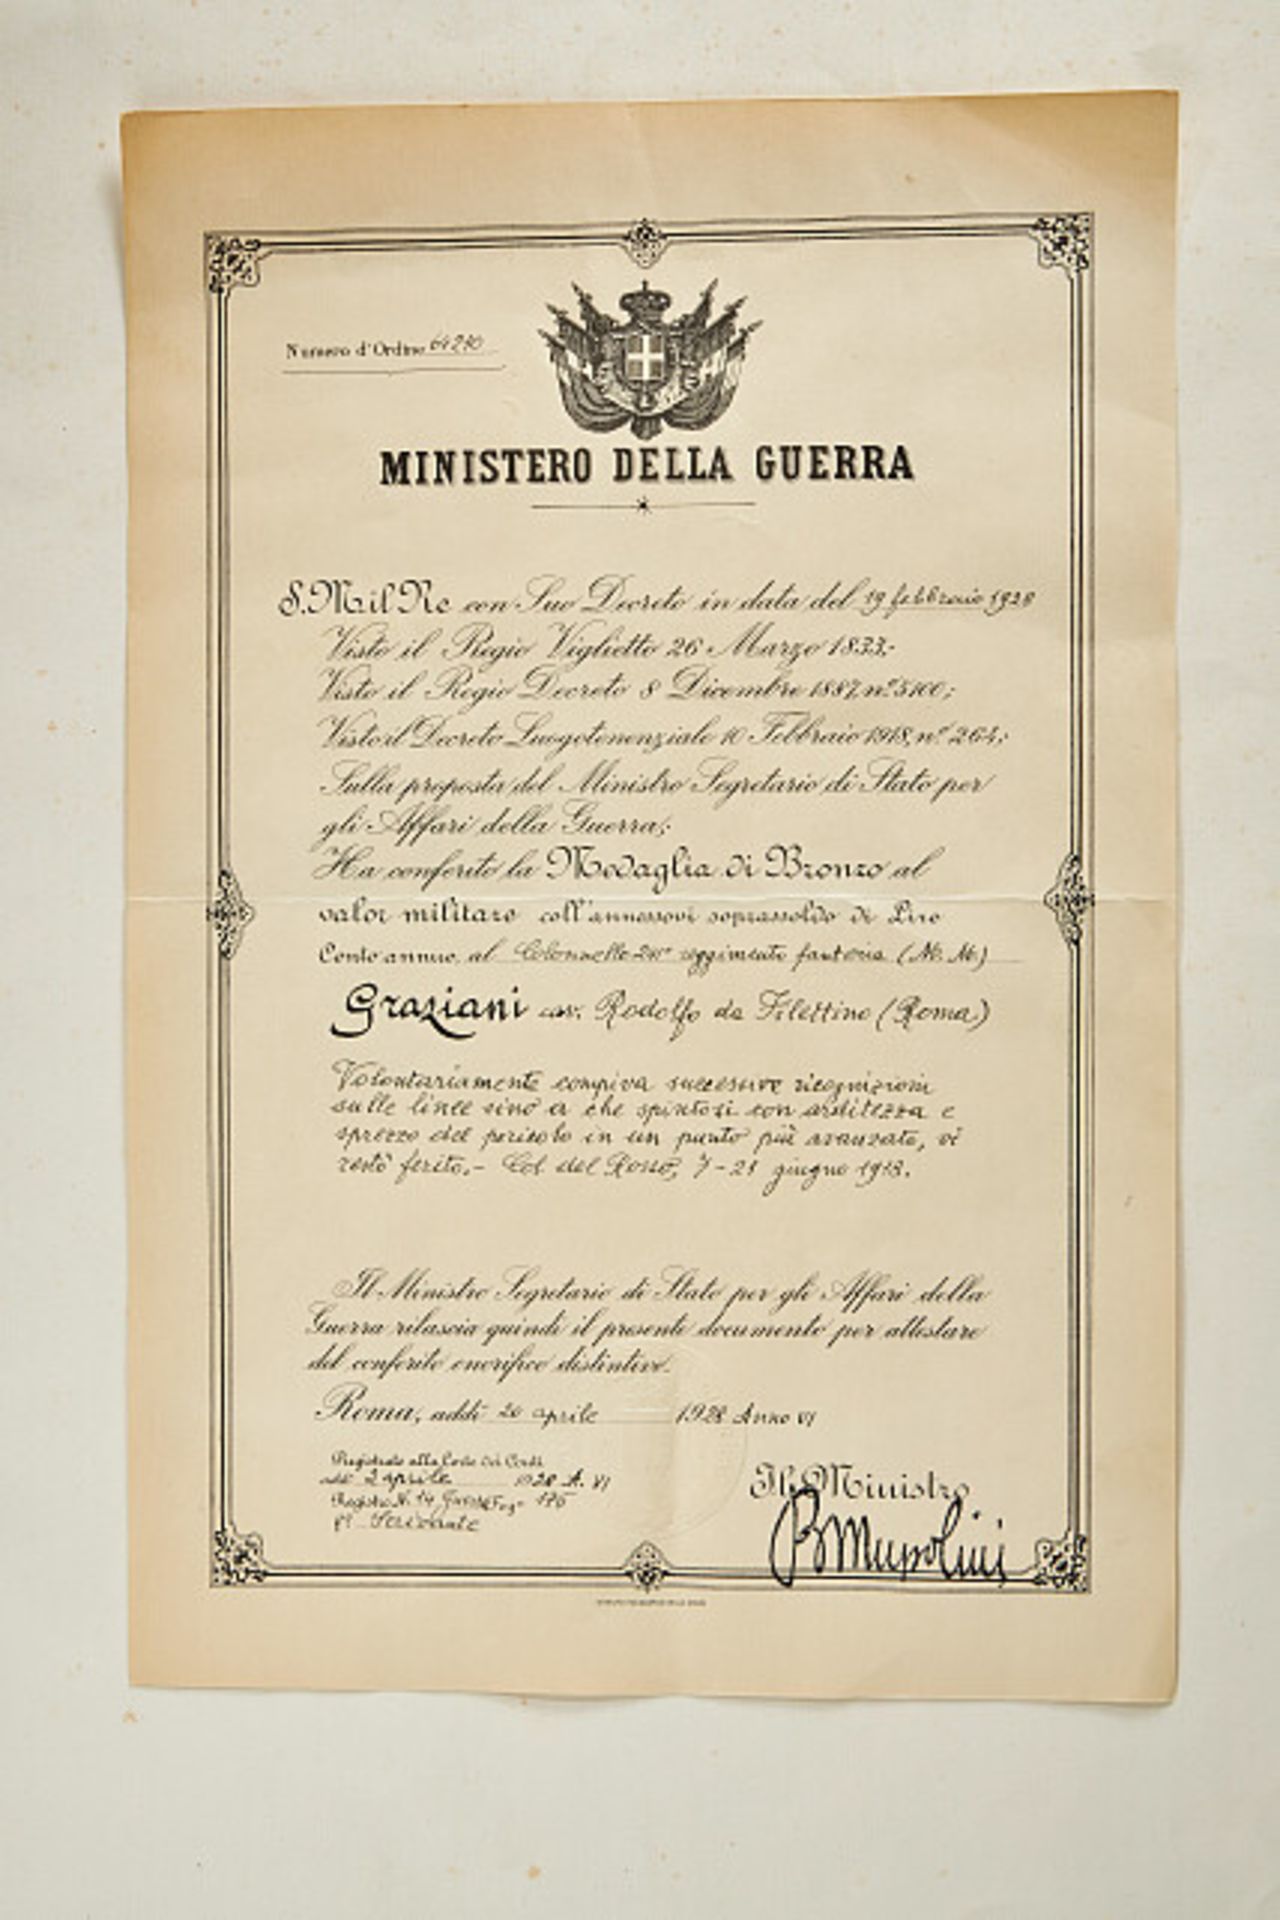 Numero d'Ordine 64290
MINISTERO DELLA GUERRA
S. M. il Re con Suo Decreto in data del 19 febbraio 1928
Visto il Regio Viglietto 26 Marzo 1833;
Visto il Regio Decreto 8 Dicembre 1887, n.º 5100;
Visto il Decreto Luogotenenziale 10 Febbraio 1918, n.º 264;
Sulla proposta del Ministro Segretario di Stato per
gli Affari della Guerra;
Ha conferito la Medaglia di Bronzo al
valor militare coll'annessovi soprassoldo di Lire
Cento annue, al Colonnello reggimento fanteria (M. M.)
Graziani cav. Rodolfo da Filettino (Roma)
Volontariamente compiva successive ricognizioni
sulle linee sino a che spintosi con arditezza e
sprezzo del pericolo in un punto più avanzato, vi
restò ferito. - Col del Rosso, 7 - 21 giugno 1918.
Il Ministro Segretario di Stato per gli Affari della
Guerra rilascia quindi il presente documento per attestare
del conferito onorifico distintivo.
Roma, addì 20 aprile 1928 Anno VI
Registrato alla Corte dei Conti
addì 2 aprile 1928 A. VI
Registro N. 14, Guerra Fog.º 175
Il Ministro
B Mussolini